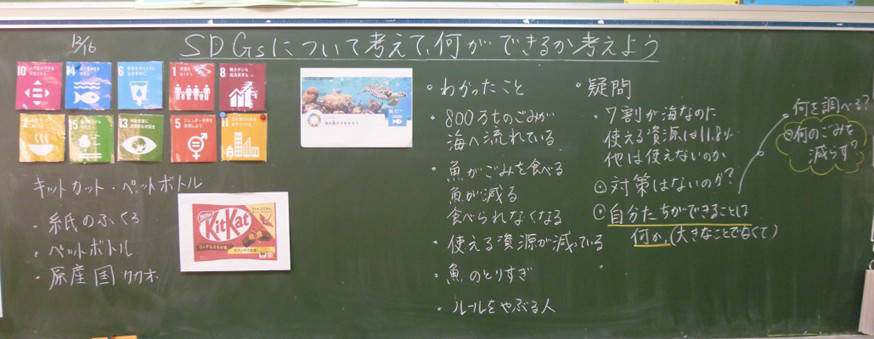 12/16
SDGsについて考えて、何ができるか考えよう
10
14
6
1
8
2
15
13
5
11
キットカット・ペットボトル
・紙氏のふくろ
・ペットボトル
・原産国 カカオ
Nestle
KitKat
・わかったこと
・800万tのごみが
海へ流れている
・魚がごみを食べる
魚が減る
食べられなくなる
・使える資源が減っている
・魚のとりすぎ
・ルールをやぶる人
・疑問
・7割が海なのに
使える資源は11.8%
他は使えないのか
⊙対策はないのか?
⊙自分たちができることは
何か。(大きなことでなくて)
何を調べる?
⊙何のごみを
減らす?